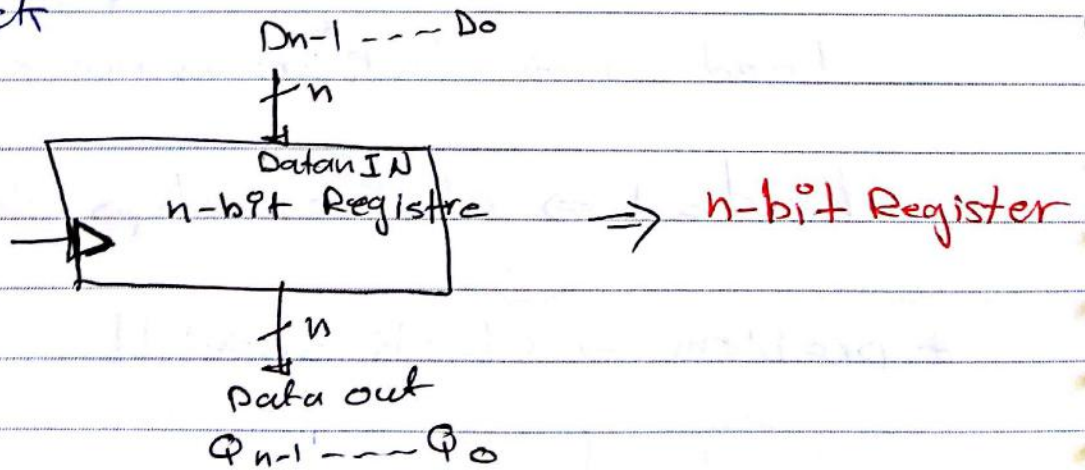 Dn-1 --- Do
n
Datan IN
n-bit Registre
⇒ n-bit Register
n
Data out
Qn-1 ---- Qo